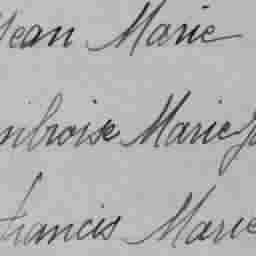 Jean Marie
mbroise Marie J
Francis Marie